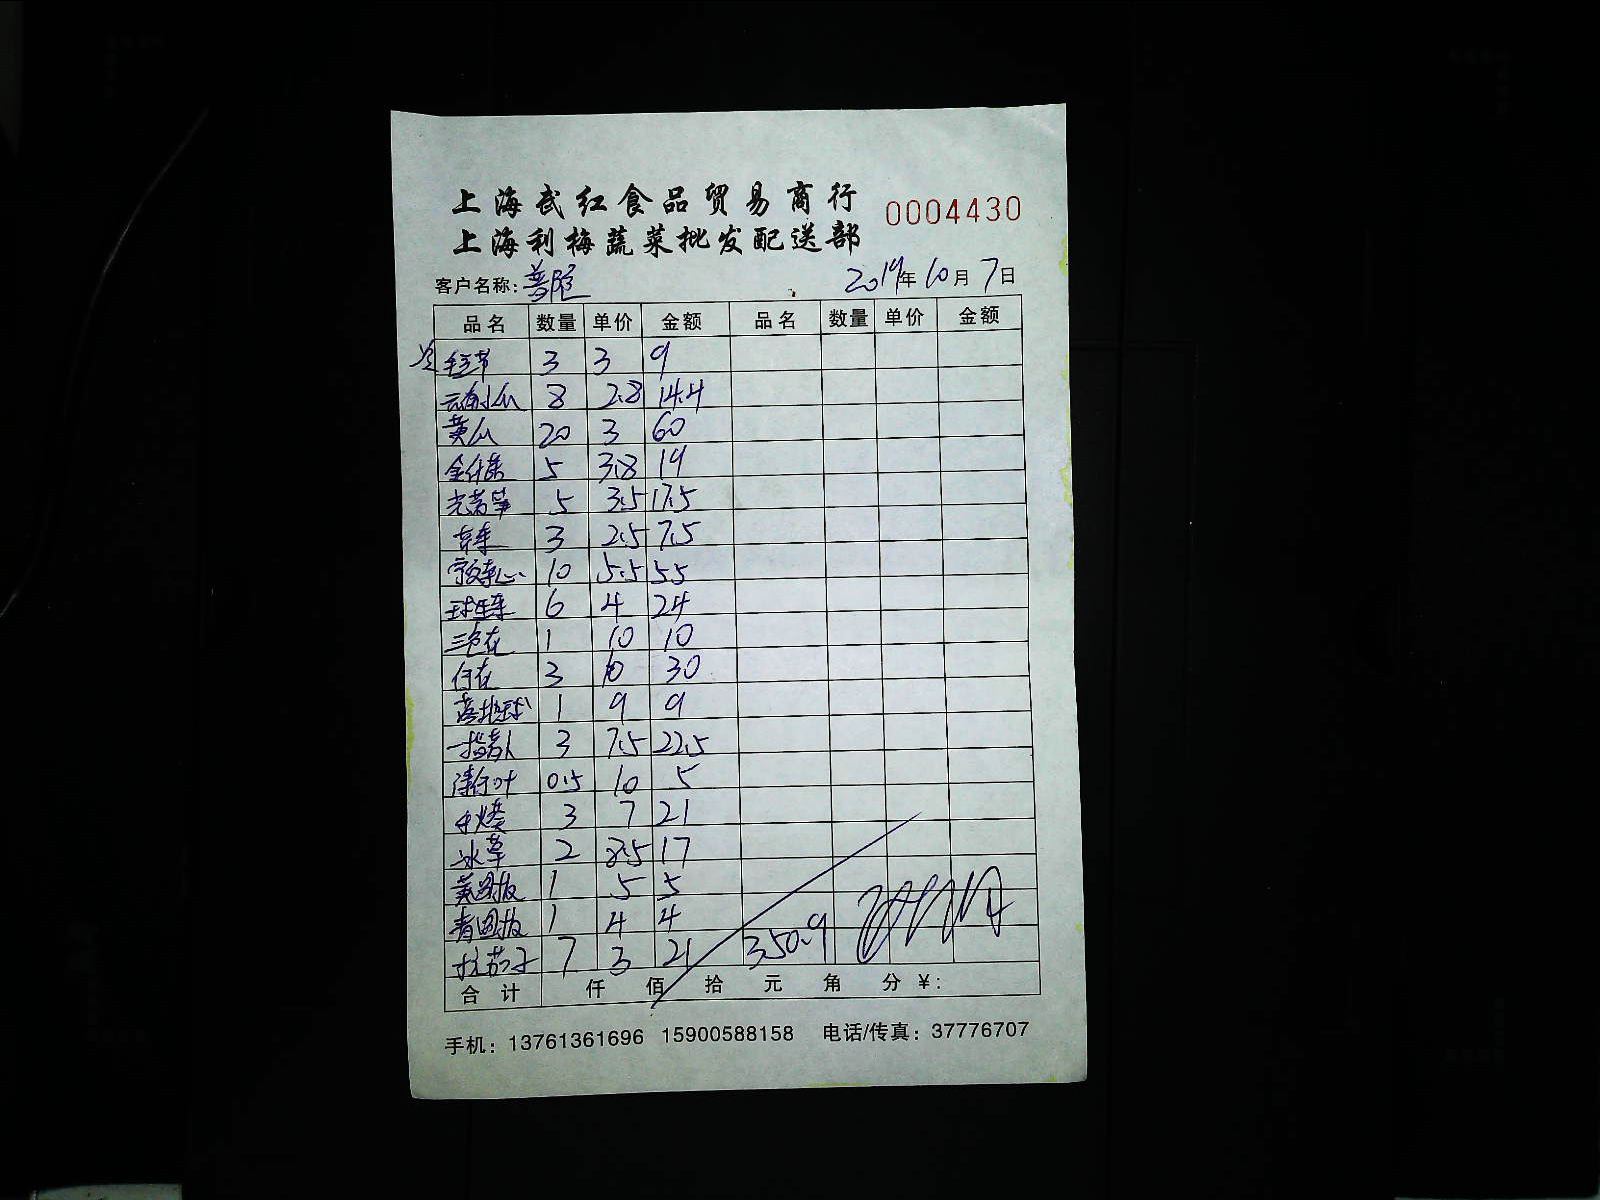 上海武红食品贸易商行
0004430
上海利梅蔬菜批发配送部
客户名称：普陀 2019年10月7日
品名 数量 单价 金额 品名 数量 单价 金额
3 3 9
8 2.8 14.4
黄瓜 20 3 60
5 3.8 19
光莴笋 5 3.5 17.5
3 2.5 7.5
10 5.5 55
球生菜 6 4 24
三色 1 10 10
3 10 30
1 9 9
3 7.5 22.5
0.5 10 5
3 7 21
冰草 2 8.5 17
黄圆椒 1 5 5
青圆椒 1 4 4
杭茄子 7 3 21 350.9
合计 仟 佰 拾 元 角 分 ¥：
手机：13761361696 15900588158 电话/传真：37776707